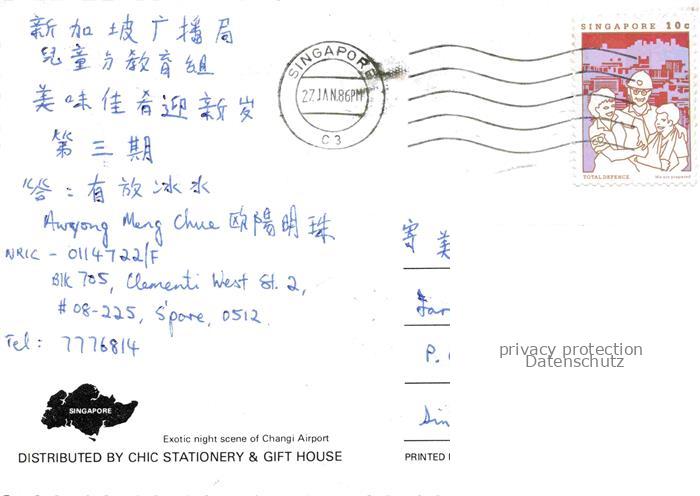 新加坡广播局
兒童与教育組
美味佳肴迎新岁
第三期
答:有放冰水
Awyong Meng Chue 欧陽明珠
NRIC - 0114722/F
Blk 705, Clementi West St. 2,
#08-225, S'pore, 0512.
Tel: 7776814
SINGAPORE
Exotic night scene of Changi Airport
DISTRIBUTED BY CHIC STATIONERY & GIFT HOUSE
SINGAPORE
27 JAN.86PM
C3
SINGAPORE 10c
TOTAL DEFENCE We are prepared
美
P.
PRINTED
privacy protection
Datenschutz